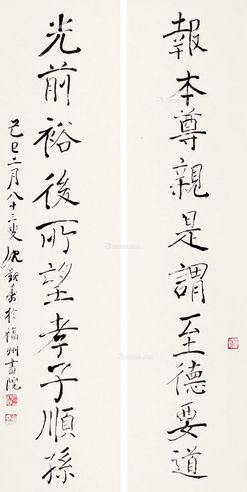 報本尊親是謂至德要道
光前裕後所望孝子順孫
己巳二月八十二叟沈覲壽於福州畫院